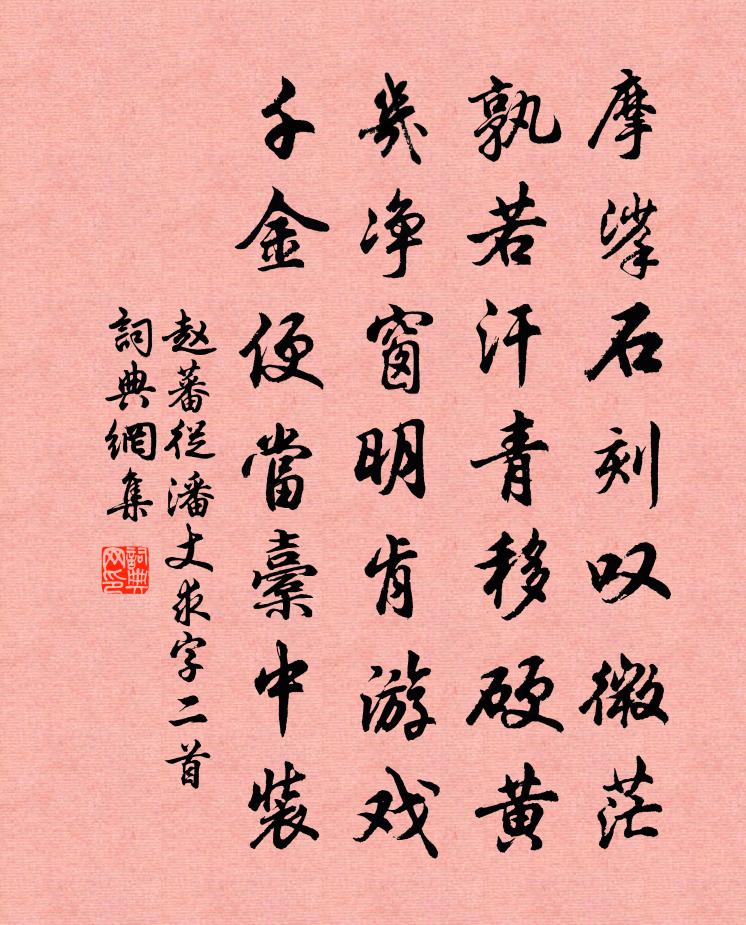 摩挲石刻叹微茫
孰若汗青移硬黄
几净窗明肯游戏
千金便當橐中装
赵蕃從潘丈求字二首
詞典網集
詞典网印